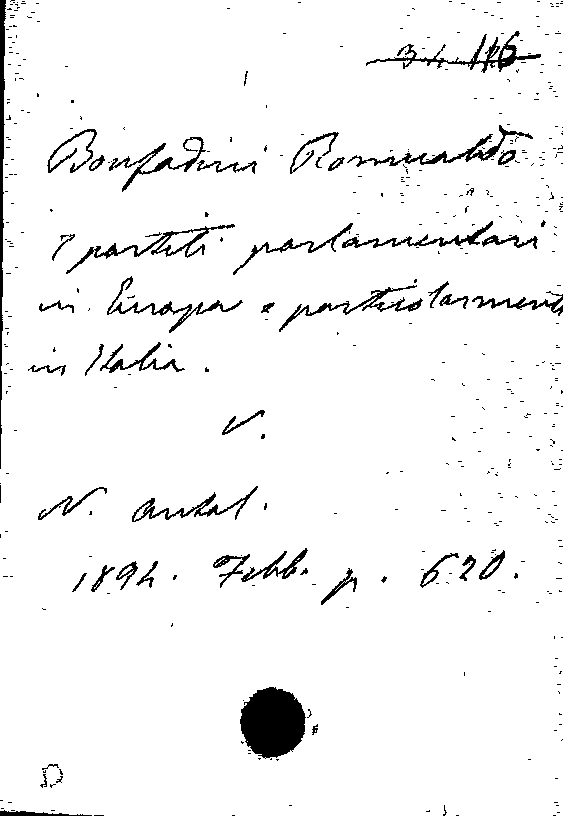 3.4.116
Bonfadini Romualdo
I partiti parlamentari
in Europa e particolarment
in Italia.
V.
N. Antol.
1894. Febb. p. 620.